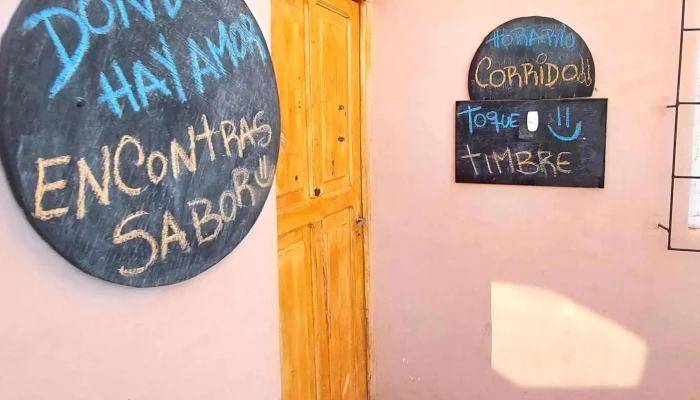 DONDE
HAY AMOR
ENCONTRAS
SABOR
HORARIO
CORRIDO!!
TOQUE
TIMBRE